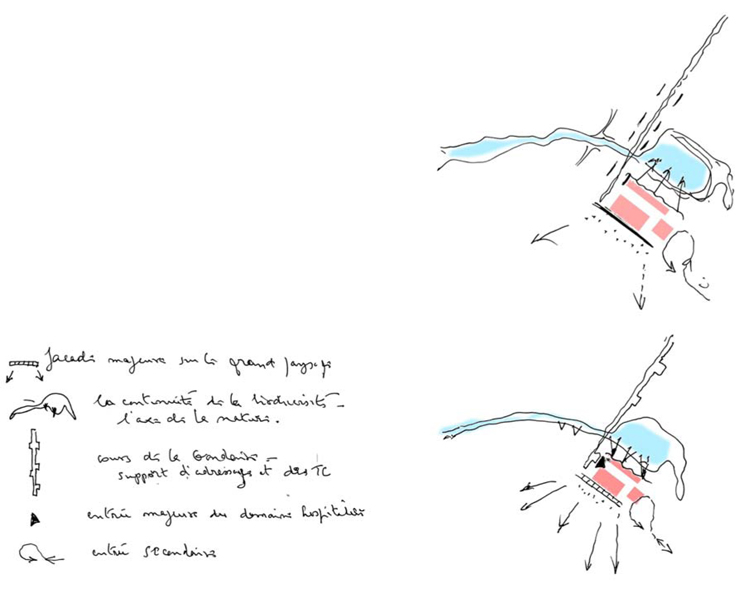 façade majeure sur le grand paysage
la continuité de la biodiversité -
l'axe de la nature.
cours de la Gondoire -
support d'adressage et des TC
entrée majeure du domaine hospitalier
entrée secondaire